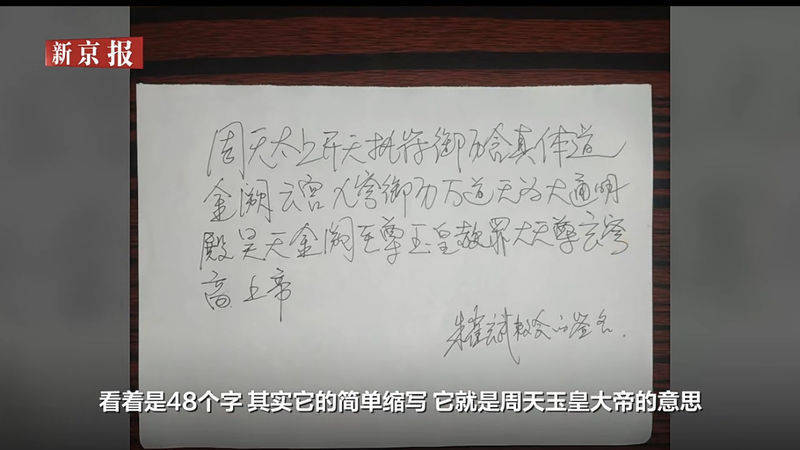 新京报
周天太上开天执符御历含真体道
金阙云宫九穹御历万道无为大通明
殿昊天金阙至尊玉皇赦罪大天尊玄穹
高上帝
看着是48个字 其实它的简单缩写 它就是周天玉皇大帝的意思